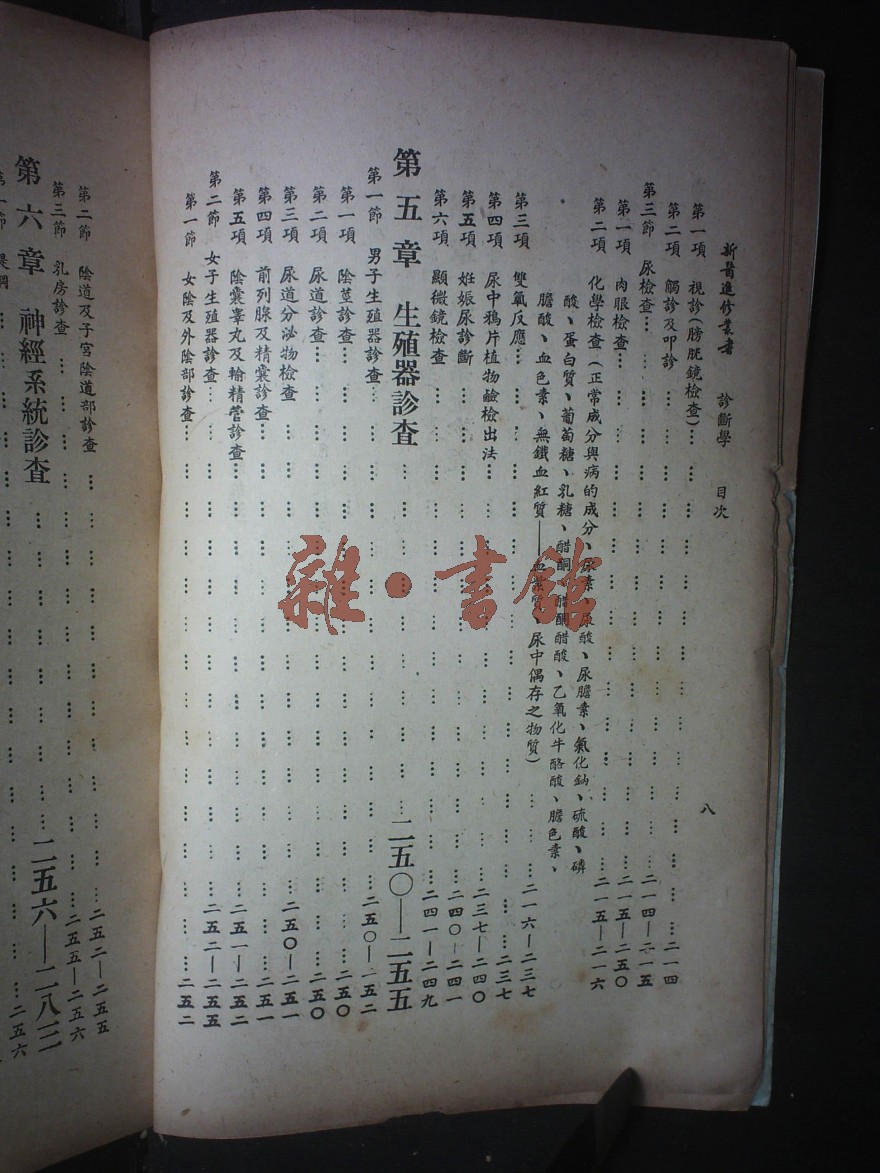 新醫進修叢書　診斷學　目次　八
第一項　視診(膀胱鏡檢查)……二一四
第二項　觸診及叩診……二一四—二一五
第三節　尿檢查……二一五—二五〇
第一項　肉眼檢查……二一五—二一六
第二項　化學檢查(正常成分與病的成分、尿素、尿酸、尿膽素、氯化鈉、硫酸、磷
酸、蛋白質、葡萄糖、乳糖、醋酮、醋酮醋酸、乙氧化牛酪酸、膽色素、
膽酸、血色素、無鐵血紅質——血紫質、尿中偶存之物質)……二一六—二三七
第三項　雙氮反應……二三七
第四項　尿中鴉片植物鹼檢出法……二三七—二四〇
第五項　姙娠尿診斷……二四〇—二四一
第六項　顯微鏡檢查……二四一—二四九
第五章　生殖器診查……二五〇—二五五
第一節　男子生殖器診查……二五〇—二五二
第一項　陰莖診查……二五〇
第二項　尿道診查……二五〇
第三項　尿道分泌物檢查……二五〇—二五一
第四項　前列腺及精囊診查……二五一
第五項　陰囊睾丸及輸精管診查……二五一—二五二
第二節　女子生殖器診查……二五二—二五五
第一節　女陰及外陰部診查……二五二
第二節　陰道及子宮陰道部診查……二五二—二五五
第三節　乳房診查……二五五—二五六
第六章　神經系統診查……二五六—二八三
第一節　提綱……二五六
雜·書館